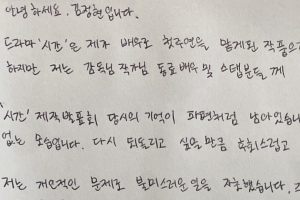 안녕하세요. 김정현입니다.
드라마 '시간'은 제가 배우로 첫 주연을 맡게된 작품으
하지만 저는 감독님 작가님 동료 배우 및 스텝분들께
'시간' 제작발표회 당시의 기억이 파편처럼 남아있습
없는 모습입니다. 다시 되돌리고 싶을 만큼 후회스럽고
저는 개인적인 문제로 불미스러운 일을 자초했습니다.